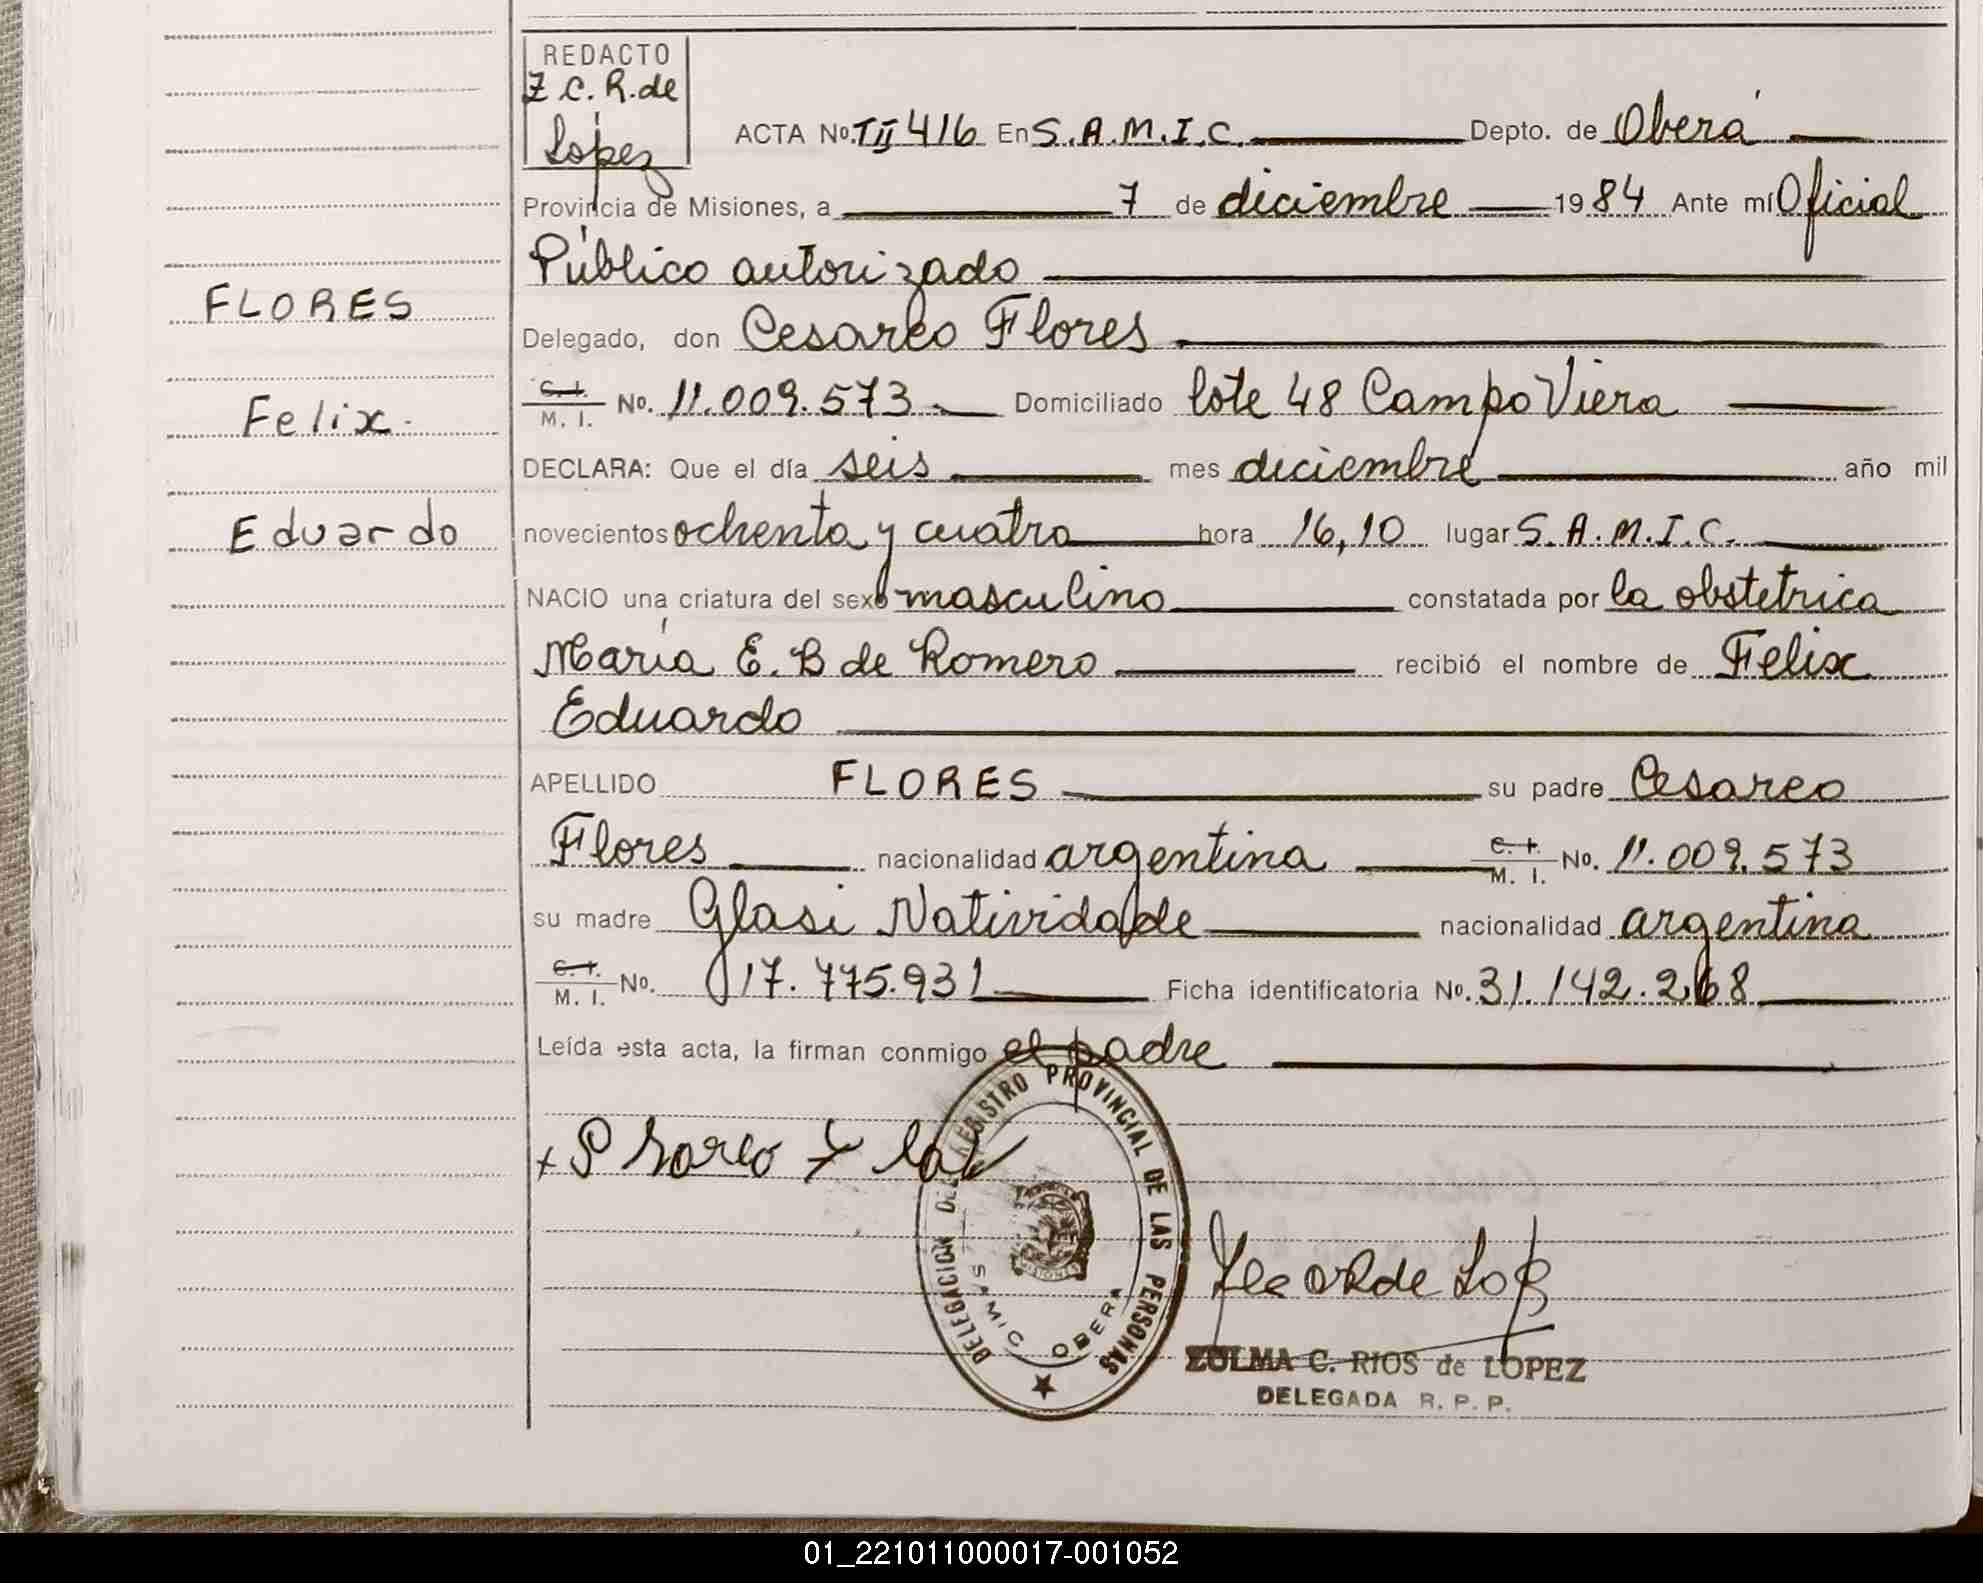 REDACTO
Z C. R. de
López
ACTA No. T II 416 En S. A. M. I. C. Depto. de Oberá
Provincia de Misiones, a 7 de diciembre 1984 Ante mí Oficial
Público autorizado
FLORES
Delegado, don Cesareo Flores
C. I. / M. I. No. 11.009.573 Domiciliado lote 48 Campo Viera
Felix.
DECLARA: Que el día seis mes diciembre año mil
Eduardo
novecientos ochenta y cuatro hora 16,10 lugar S. A. M. I. C.
NACIO una criatura del sexo masculino constatada por la obstetrica
María E. B de Romero recibió el nombre de Felix
Eduardo
APELLIDO FLORES su padre Cesareo
Flores nacionalidad argentina C. I. / M. I. No. 11.009.573
su madre Glasi Natividade nacionalidad argentina
C. I. / M. I. No. 17.775.931 Ficha identificatoria No. 31.142.268
Leída esta acta, la firman conmigo el padre
DELEGACION DEL REGISTRO PROVINCIAL DE LAS PERSONAS
SAMIC OBERA
ZULMA C. RIOS de LOPEZ
DELEGADA R. P. P.
01_221011000017-001052